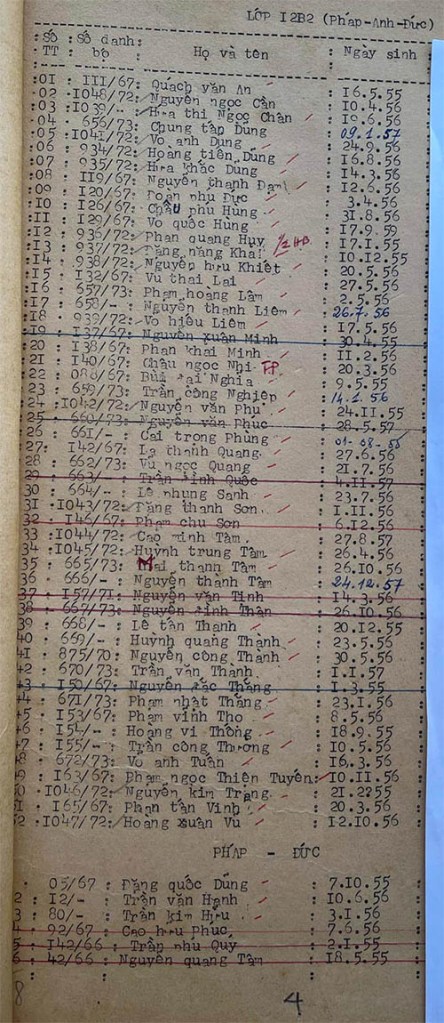 LỚP I2B2 (Pháp-Anh-Đức)
:Số : Số danh: Họ và tên : Ngày sinh :
TT : bộ
:01 : III/67: Quách văn An : I6.5.55
:02 :I048/72: Nguyễn ngọc Cẩn : I0.4.56
:03 :I039/-: Hứa thi Ngọc Chân : I0.6.56
:04 : 656/73: Chung tấp Dũng : 09.1.57
:05 :I041/72: Vo anh Dung : 24.9.56
:06 : 934/72: Hoàng tiến Dũng : I6.8.56
:07 : 935/72: Hứa khắc Dũng : I4.3.56
:08 : II9/67: Nguyễn thanh Đạm : I2.6.56
:09 : I20/67: Đoàn phú Đức : 3.4.56
:I0 : I26/67: Châu phú Hùng : 3I.8.56
:II : I29/67: Vo quốc Hùng : I7.9.59
:I2 : 936/72: Phan quang Huy 1/2 HB : I7.I.55
:I3 : 937/72: Đặng năng Khai : I0.I2.55
:I4 : 938/72: Nguyễn hưu Khiết : 20.5.56
:I5 : I32/67: Vu thai Lai : 27.5.56
:I6 : 657/73: Phạm hoàng Lâm : 2.5.56
:I7 : 658/- : Nguyễn thanh Liêm : 26.7.56
:I8 : 939/72: Vo hiếu Liêm : I7.5.56
:I9 : I37/67: Nguyễn xuân Minh : 30.4.55
:20 : I38/67: Phan khai Minh : II.2.56
:2I : I40/67: Châu ngọc Nhi FP : 20.3.56
:22 : 088/67: Bùi đại Nghia : 9.5.55
:23 : 659/73: Trần công Nghiệp : 14.1.56
:24 :I042/72: Nguyễn văn Phú : 24.II.55
:25 : 660/73: Nguyễn văn Phúc : 28.5.57
:26 : 66I/- : Cai trong Phùng : 01-08-56
:27: I42/67: La thanh Quang : 27.6.56
:28 : 662/73: Vu ngọc Quang : 2I.7.56
:29 : 663/- : Trần đình Quốc : 4.II.57
30 : 664/- : Lê nhung Sanh : 23.7.56
3I :I043/72: Đặng thanh Sơn : I.II.56
:32 : I46/67: Phạm chu Sơn : 6.I2.56
:33 :I044/72: Cao minh Tâm : 27.8.57
:34 :I045/72: Huỳnh trung Tâm : 26.4.56
35 : 665/73: Mai thanh Tâm : 26.I0.56
:36 : 666/- : Nguyễn thanh Tâm : 24.12.57
:37 : I57/7I: Nguyễn văn Tinh : I4.3.56
:38 : 667/73: Nguyễn đình Thân : 26.I0.56
39 : 668/- : Lê tấn Thanh : 20.I2.55
40 : 669/- : Huỳnh quang Thành : 23.5.56
4I : 875/70: Nguyễn công Thành : 30.5.56
42 : 670/73: Trần văn Thành : I.I.57
43 : I50/67: Nguyễn đắc Thắng : I.3.55
4 : 67I/73: Phạm nhật Thăng : 23.I.56
5 : I53/67: Phạm vinh Thọ : 8.5.56
6 : I54/- : Hoàng vi Thông : I8.9.55
7 : I55/- : Trần công Thương : I0.5.56
8 : 672/73: Vo anh Tuấn : I6.3.56
9 : I63/67: Phạm ngọc Thiện Tuyền: I0.II.56
0 :I046/72: Nguyễn kim Trạng : 2I.2255
I : I65/67: Phan tấn Vinh : 20.3.56
2 :I047/72: Hoàng xuân Vu : I2.I0.56
PHÁP - ĐỨC
05/67 : Đặng quốc Dũng : 7.I0.55
2 : I2/- : Trần văn Hạnh : I0.6.56
3 : 80/- : Trần kim Hữu : 3.I.56
92/67 : Cao hưu Phúc : 7.6.56
5 : I42/66 : Trần phú Quý : 2.I.55
6 : 42/66 : Nguyễn quang Tâm : I8.5.55
8
4